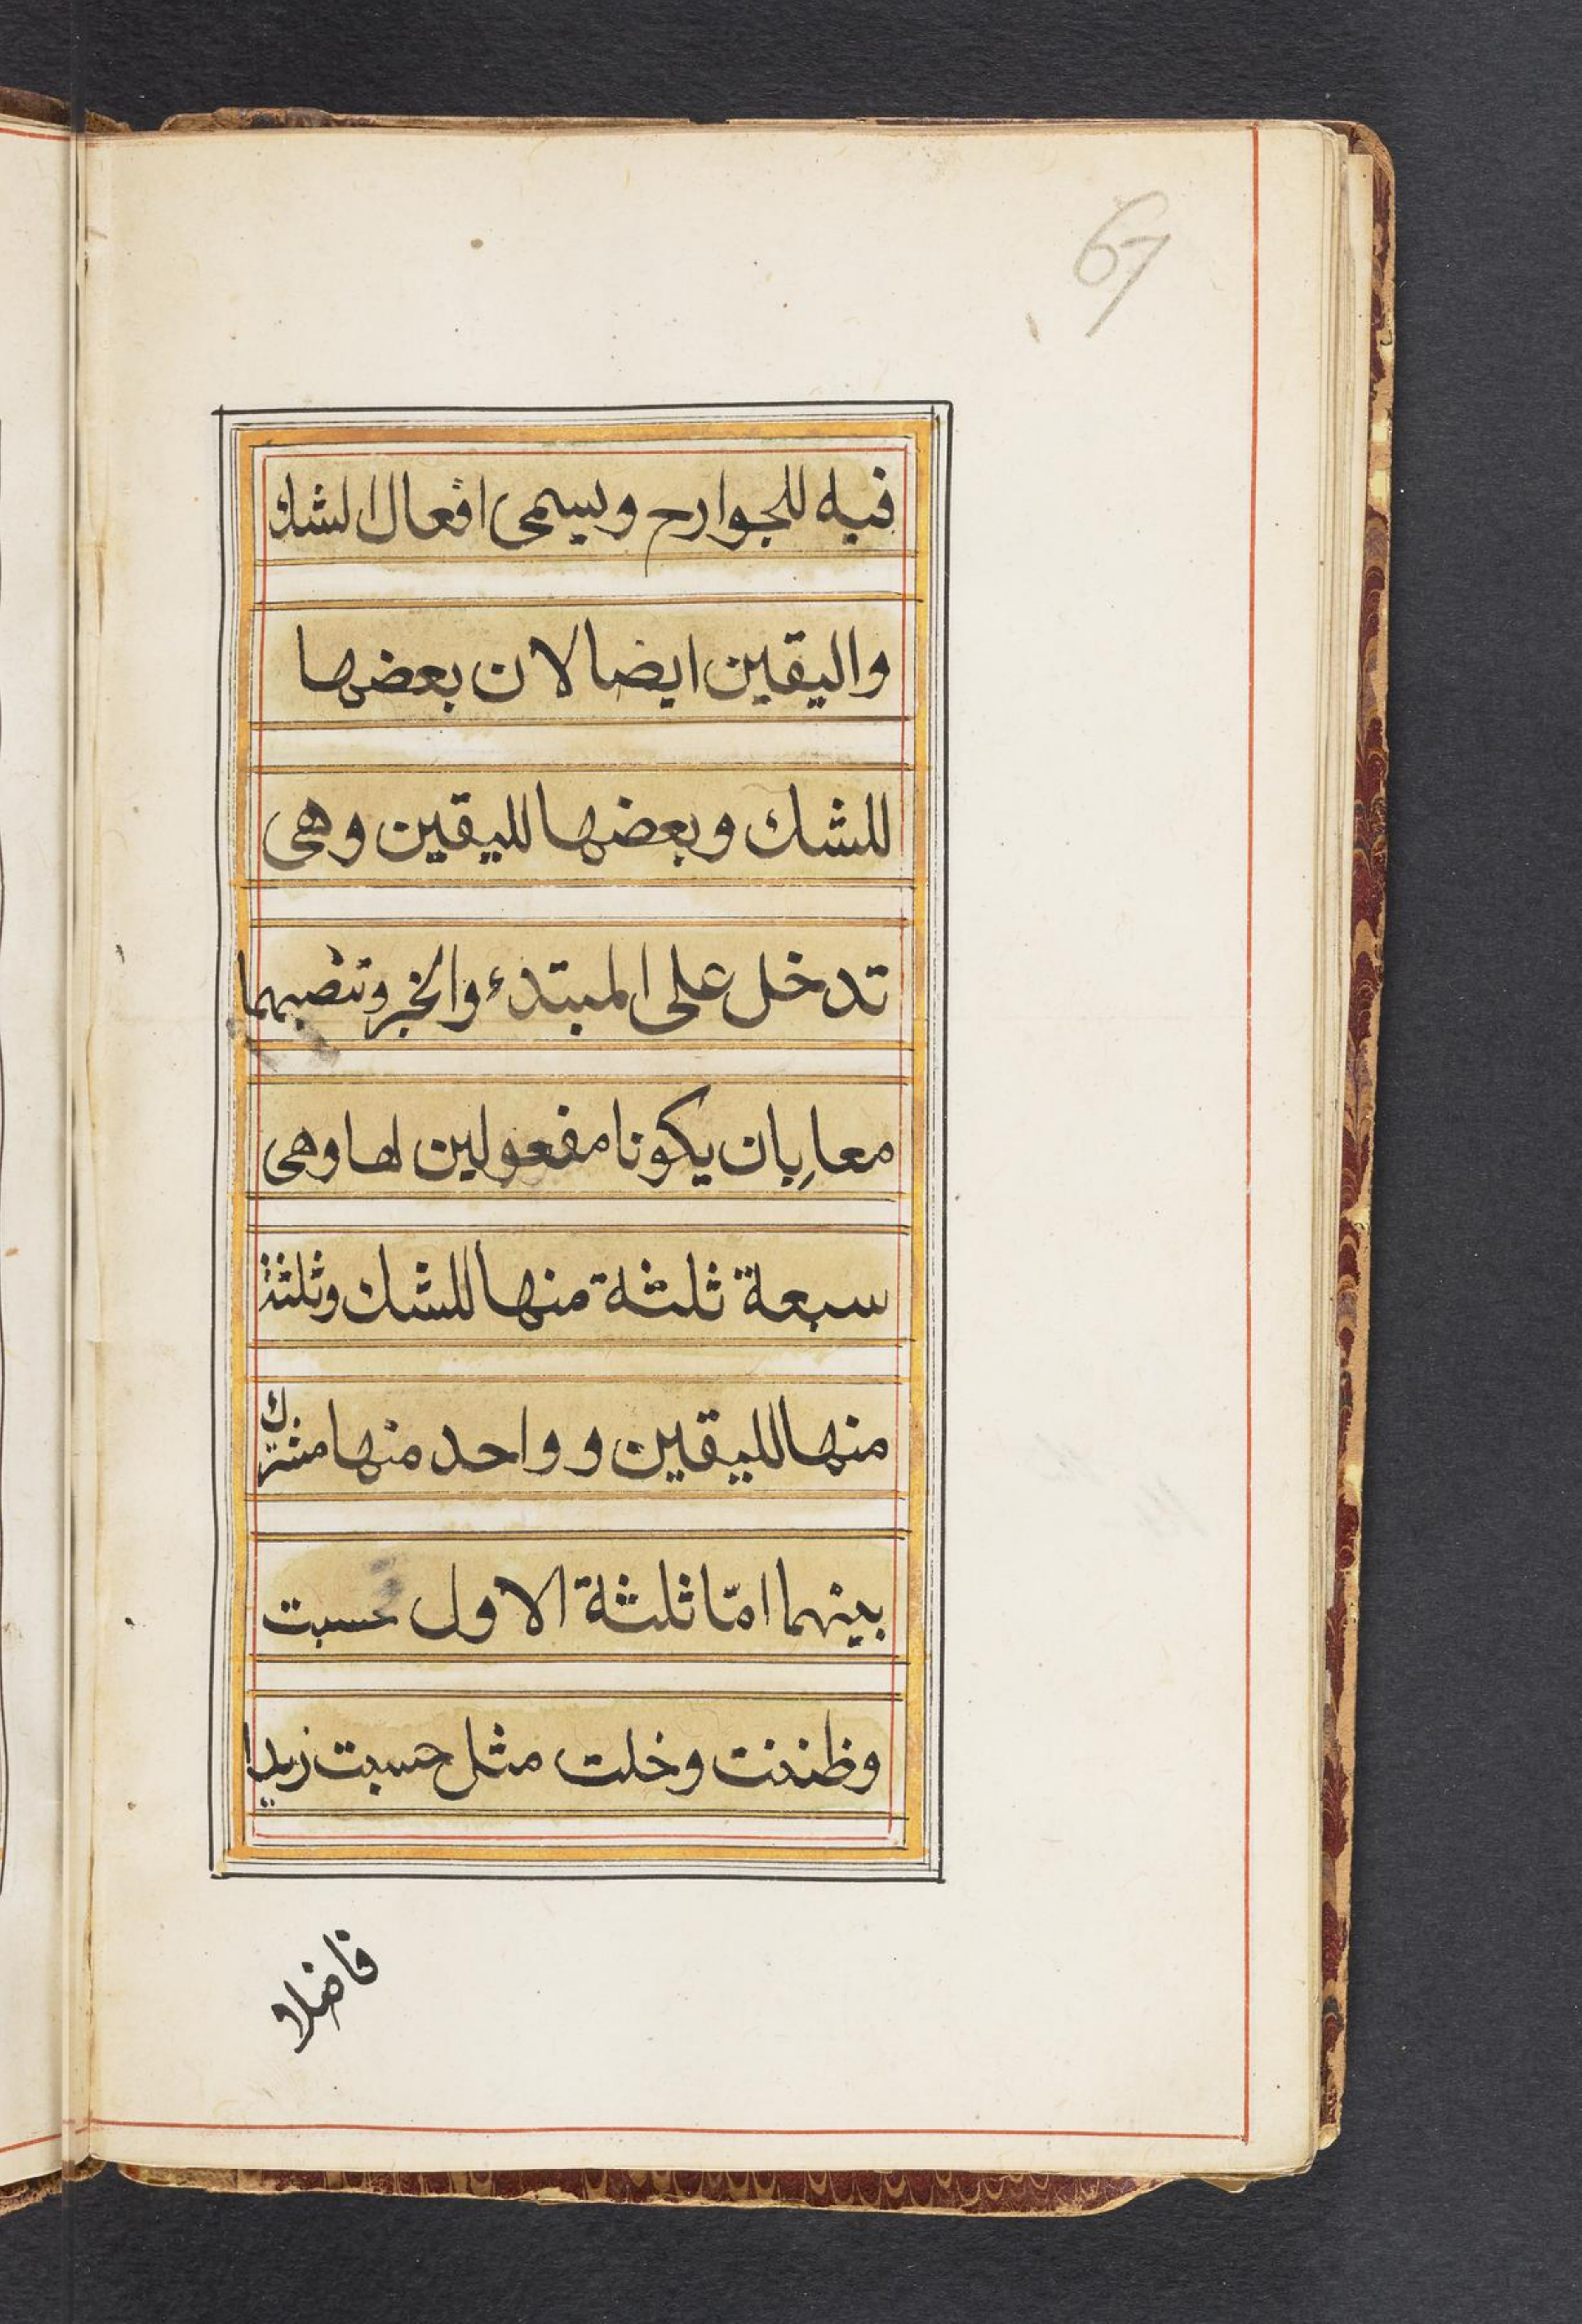 67
فيه للجوارح ويسمى افعال الشك
واليقين ايضا لان بعضها
للشك وبعضها لليقين وهى
تدخل على المبتدء والخبر وتنصبهما
معا بان يكونا مفعولين لها وهى
سبعة ثلثة منها للشك وثلثة
منها لليقين وواحد منها مشترك
بينهما امّا ثلثة الاول حسبت
وظننت وخلت مثل حسبت زيدا
فاضلا